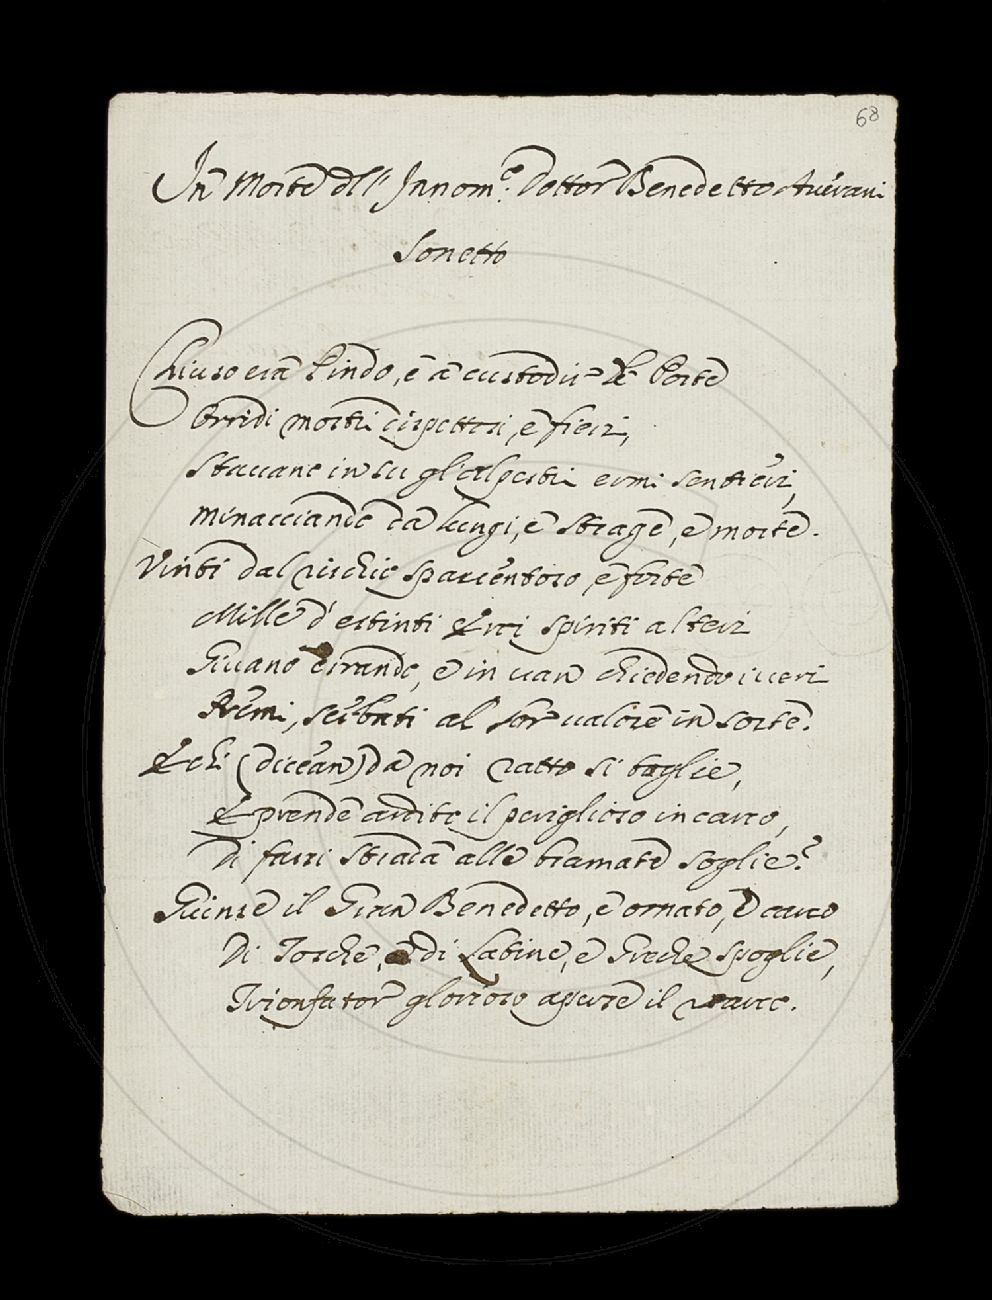 68
In Morte dell' Innom.e Dottor Benedetto Averani
Sonetto
Chiuso era Pindo, e à custodir le Porte
Orridi mostri dispettosi, e fieri,
Stavano in su gl'alpestri ermi sentieri,
Minacciando da lungi, e strage, e morte.
Vinti dal rischio spaventoso, e forte
Mille d'estinti Eroi spiriti alteri
Givano errando, e in van chiedendo i veri
Premi, serbati al lor valore in sorte.
E chi (dicean) da noi ratto si toglie,
E prende ardito il periglioso incarco,
Di farsi strada alle bramate soglie?
Giunse il Gran Benedetto, e ornato, e carco
Di Tosche, e di Latine, e Greche spoglie,
Trionfator glorioso aperse il varco.